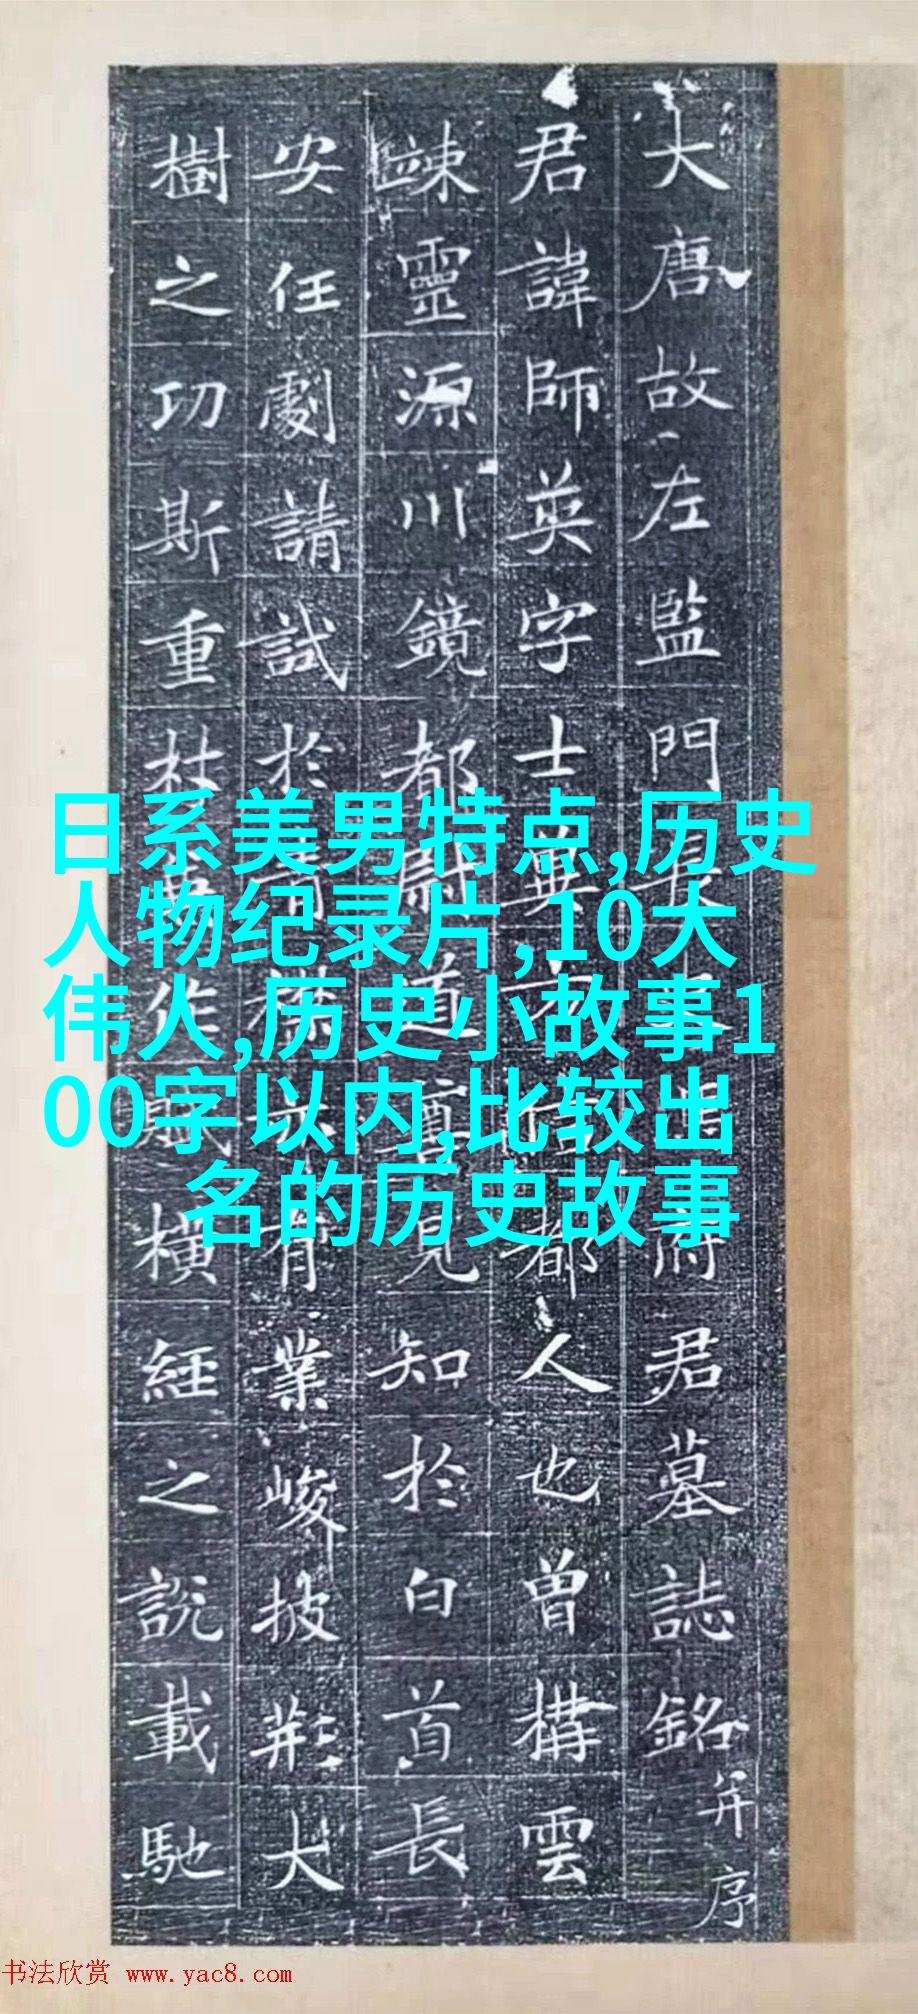 大唐故左監門長 府君墓誌銘并序
君諱師英字士 都人也曾構雲
竦靈源川鏡都尉道 見知於白首長
安任劇請試於 有業峻披荊大
樹之功斯重杖 作 橫經之說載馳
日系美男特点,历史
人物纪录片,10大
伟人,历史小故事1
00字以内,比较出
名的历史故事
书法欣赏 www.yac8.com